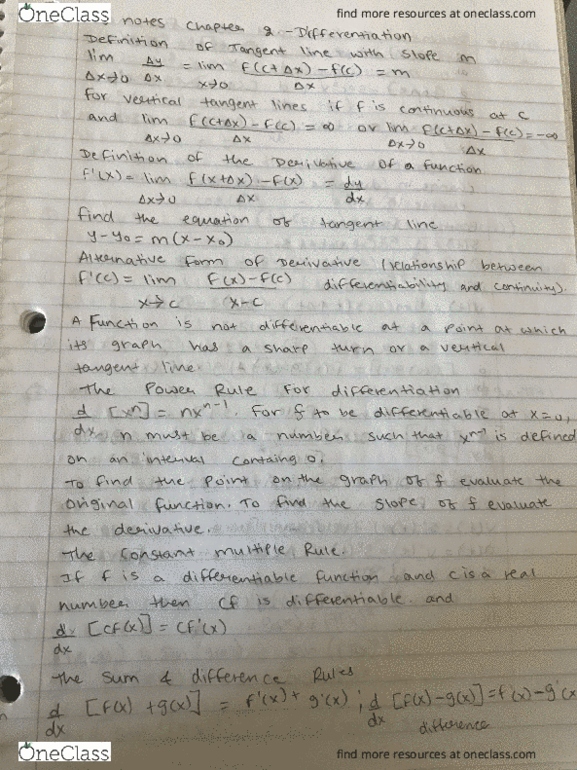 OneClass
find more resources at oneclass.com
notes Chapter 2 - Differentiation
Definition of Tangent line with slope m
lim Δy = lim f(c+Δx)-f(c) = m
Δx→0 Δx x→0 Δx
for vertical tangent lines if f is continuous at c
and lim f(c+Δx)-f(c) = ∞ or lim f(c+Δx)-f(c) = -∞
Δx→0 Δx Δx→0 Δx
Definition of the Derivative of a function
f'(x) = lim f(x+Δx)-f(x) = dy
Δx→0 Δx dx
find the equation of tangent line
y-y₀ = m(x-x₀)
Alternative form of Derivative (relationship between
f'(c) = lim f(x)-f(c) differentiability and continuity).
x→c x-c
A function is not differentiable at a point at which
its graph has a sharp turn or a vertical
tangent line.
The Power Rule for differentiation
d [xⁿ] = nxⁿ⁻¹. For f to be differentiable at x=0,
dx n must be a number such that xⁿ⁻¹ is defined
on an interval containg 0.
To find the point on the graph of f evaluate the
original function. To find the slope of f evaluate
the derivative.
The Constant multiple Rule.
If f is a differentiable function and c is a real
number then cf is differentiable and
d [cf(x)] = cf'(x)
dx
The sum & difference Rules
d [f(x) + g(x)] = f'(x) + g'(x) ; d [f(x)-g(x)] = f'(x)-g'(x
dx dx difference
OneClass
find more resources at oneclass.com